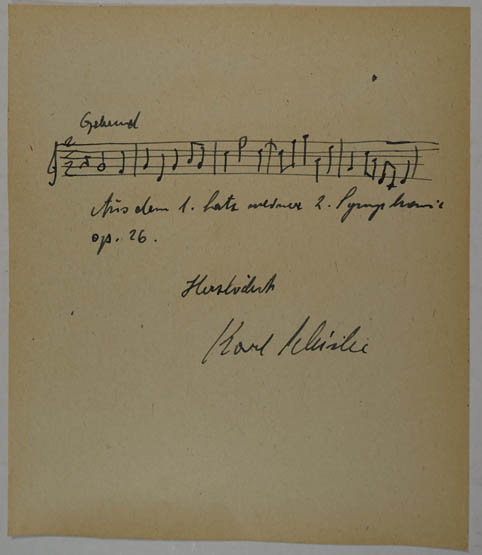 Gehend
Aus dem 1. Satz meiner 2. Symphonie
op. 26.
Herzlichst
Karl Schiske